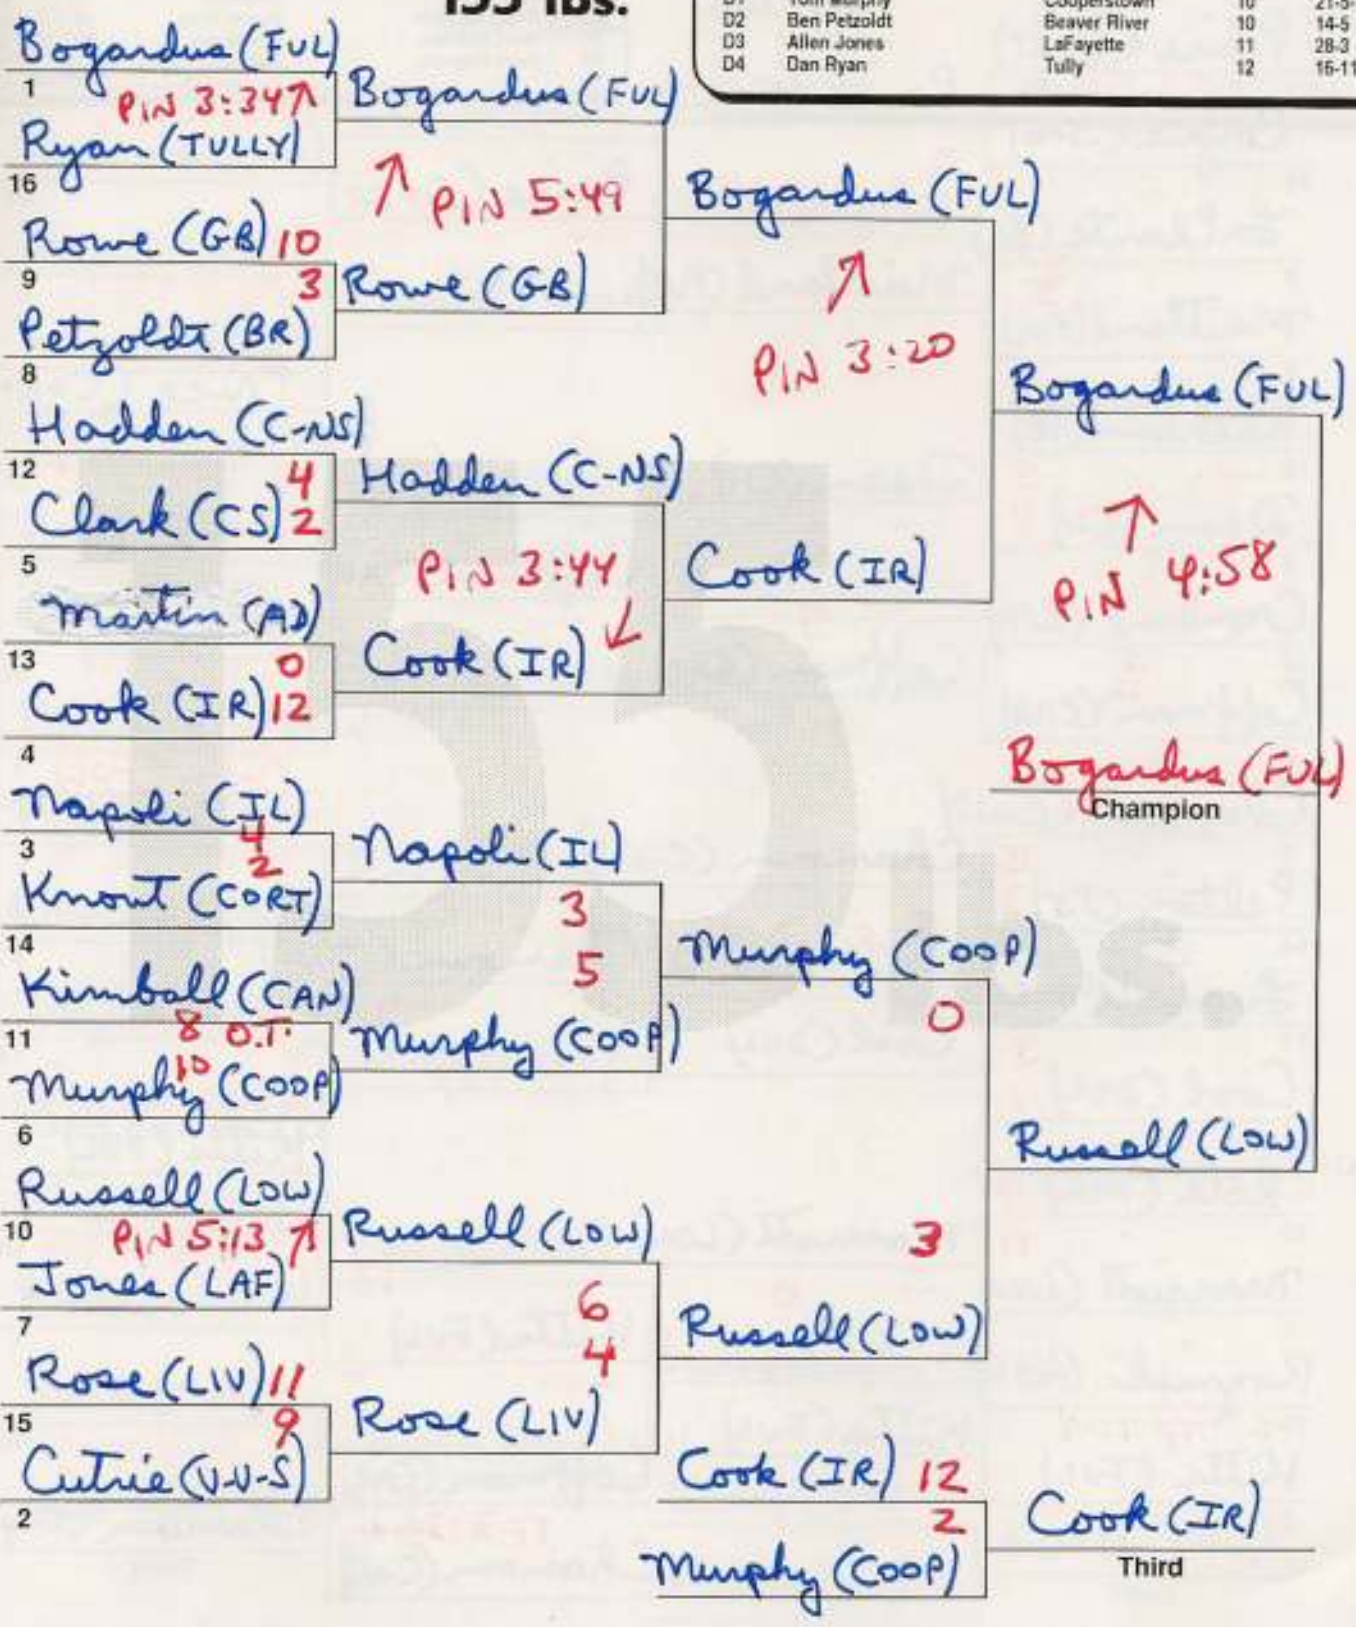 155 lbs.
D1 Tom Murphy Cooperstown 10
D2 Ben Petzoldt Beaver River 10 14-5
D3 Allen Jones LaFayette 11 28-3
D4 Dan Ryan Tully 12 16-11
Bogardus (FUL)
1
PIN 3:34
Ryan (TULLY)
16
Rowe (GB) 10
9
3
Petzoldt (BR)
8
Hadden (C-NS)
12
4
Clark (CS) 2
5
Martin (AD)
13
0
Cook (IR) 12
4
Napoli (IL)
4
3
2
Knout (CORT)
14
Kimball (CAN)
8 O.T.
11
10
Murphy (COOP)
6
Russell (LOW)
10
PIN 5:13
Jones (LAF)
7
Rose (LIV) 11
15
9
Cutrie (V-V-S)
2
Bogardus (FUL)
PIN 5:49
Rowe (GB)
Hadden (C-NS)
PIN 3:44
Cook (IR)
Napoli (IL)
3
5
Murphy (COOP)
Russell (LOW)
6
4
Rose (LIV)
Bogardus (FUL)
PIN 3:20
Cook (IR)
Murphy (COOP)
0
3
Russell (LOW)
Bogardus (FUL)
PIN 4:58
Russell (LOW)
Bogardus (FUL)
Champion
Cook (IR) 12
2
Murphy (COOP)
Cook (IR)
Third